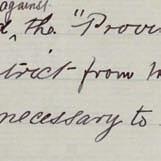 against
the "Provin
strict from
necessary to